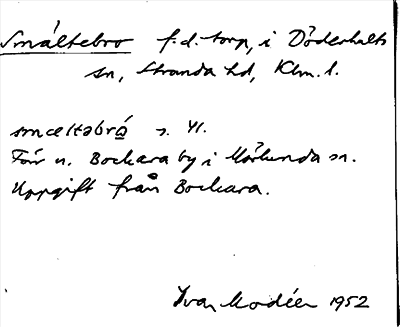 Småltebro f.d. torp, i Döderhults
sn, Stranda hd, Klm. l.
smæltəbrå s. 41.
Från Bockara by i Mörlunda sn.
Uppgift från Bockara.
Ivar Modéer 1952